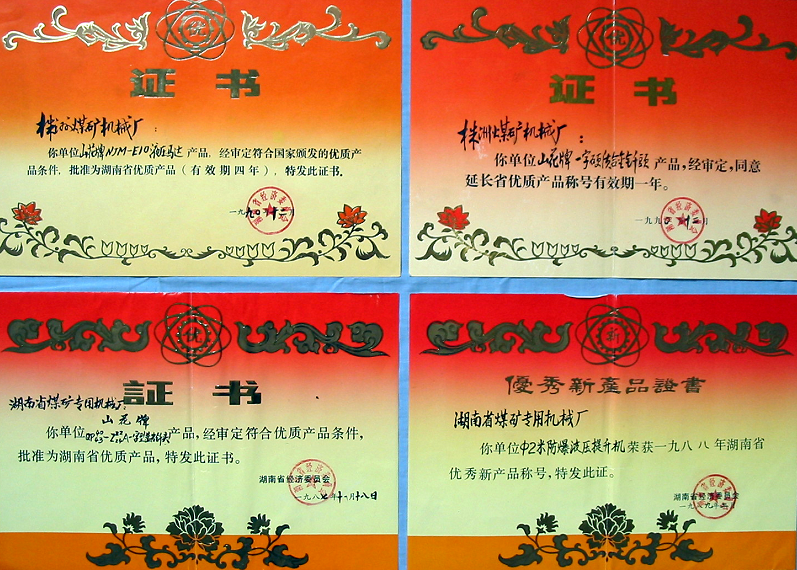 优
证书
株洲煤矿机械厂：
你单位山花牌NJM-E10液压马达产品，经审定符合国家颁发的优质产
品条件，批准为湖南省优质产品（有效期四年），特发此证书。
一九九〇年十二月
优
证书
株洲煤矿机械厂：
你单位山花牌一字硬质合金钎头产品，经审定，同意
延长省优质产品称号有效期一年。
一九九
优
証书
湖南省煤矿专用机械厂：
山花牌
你单位产品，经审定符合优质产品条件，
批准为湖南省优质产品，特发此证书。
湖南省经济委员会
一九八七年十一月十八日
新
優秀新產品證書
湖南省煤矿专用机械厂
你单位Φ2米防爆液压提升机荣获一九八八年湖南省
优秀新产品称号，特发此证。
湖南省经济委员会
一九八九年